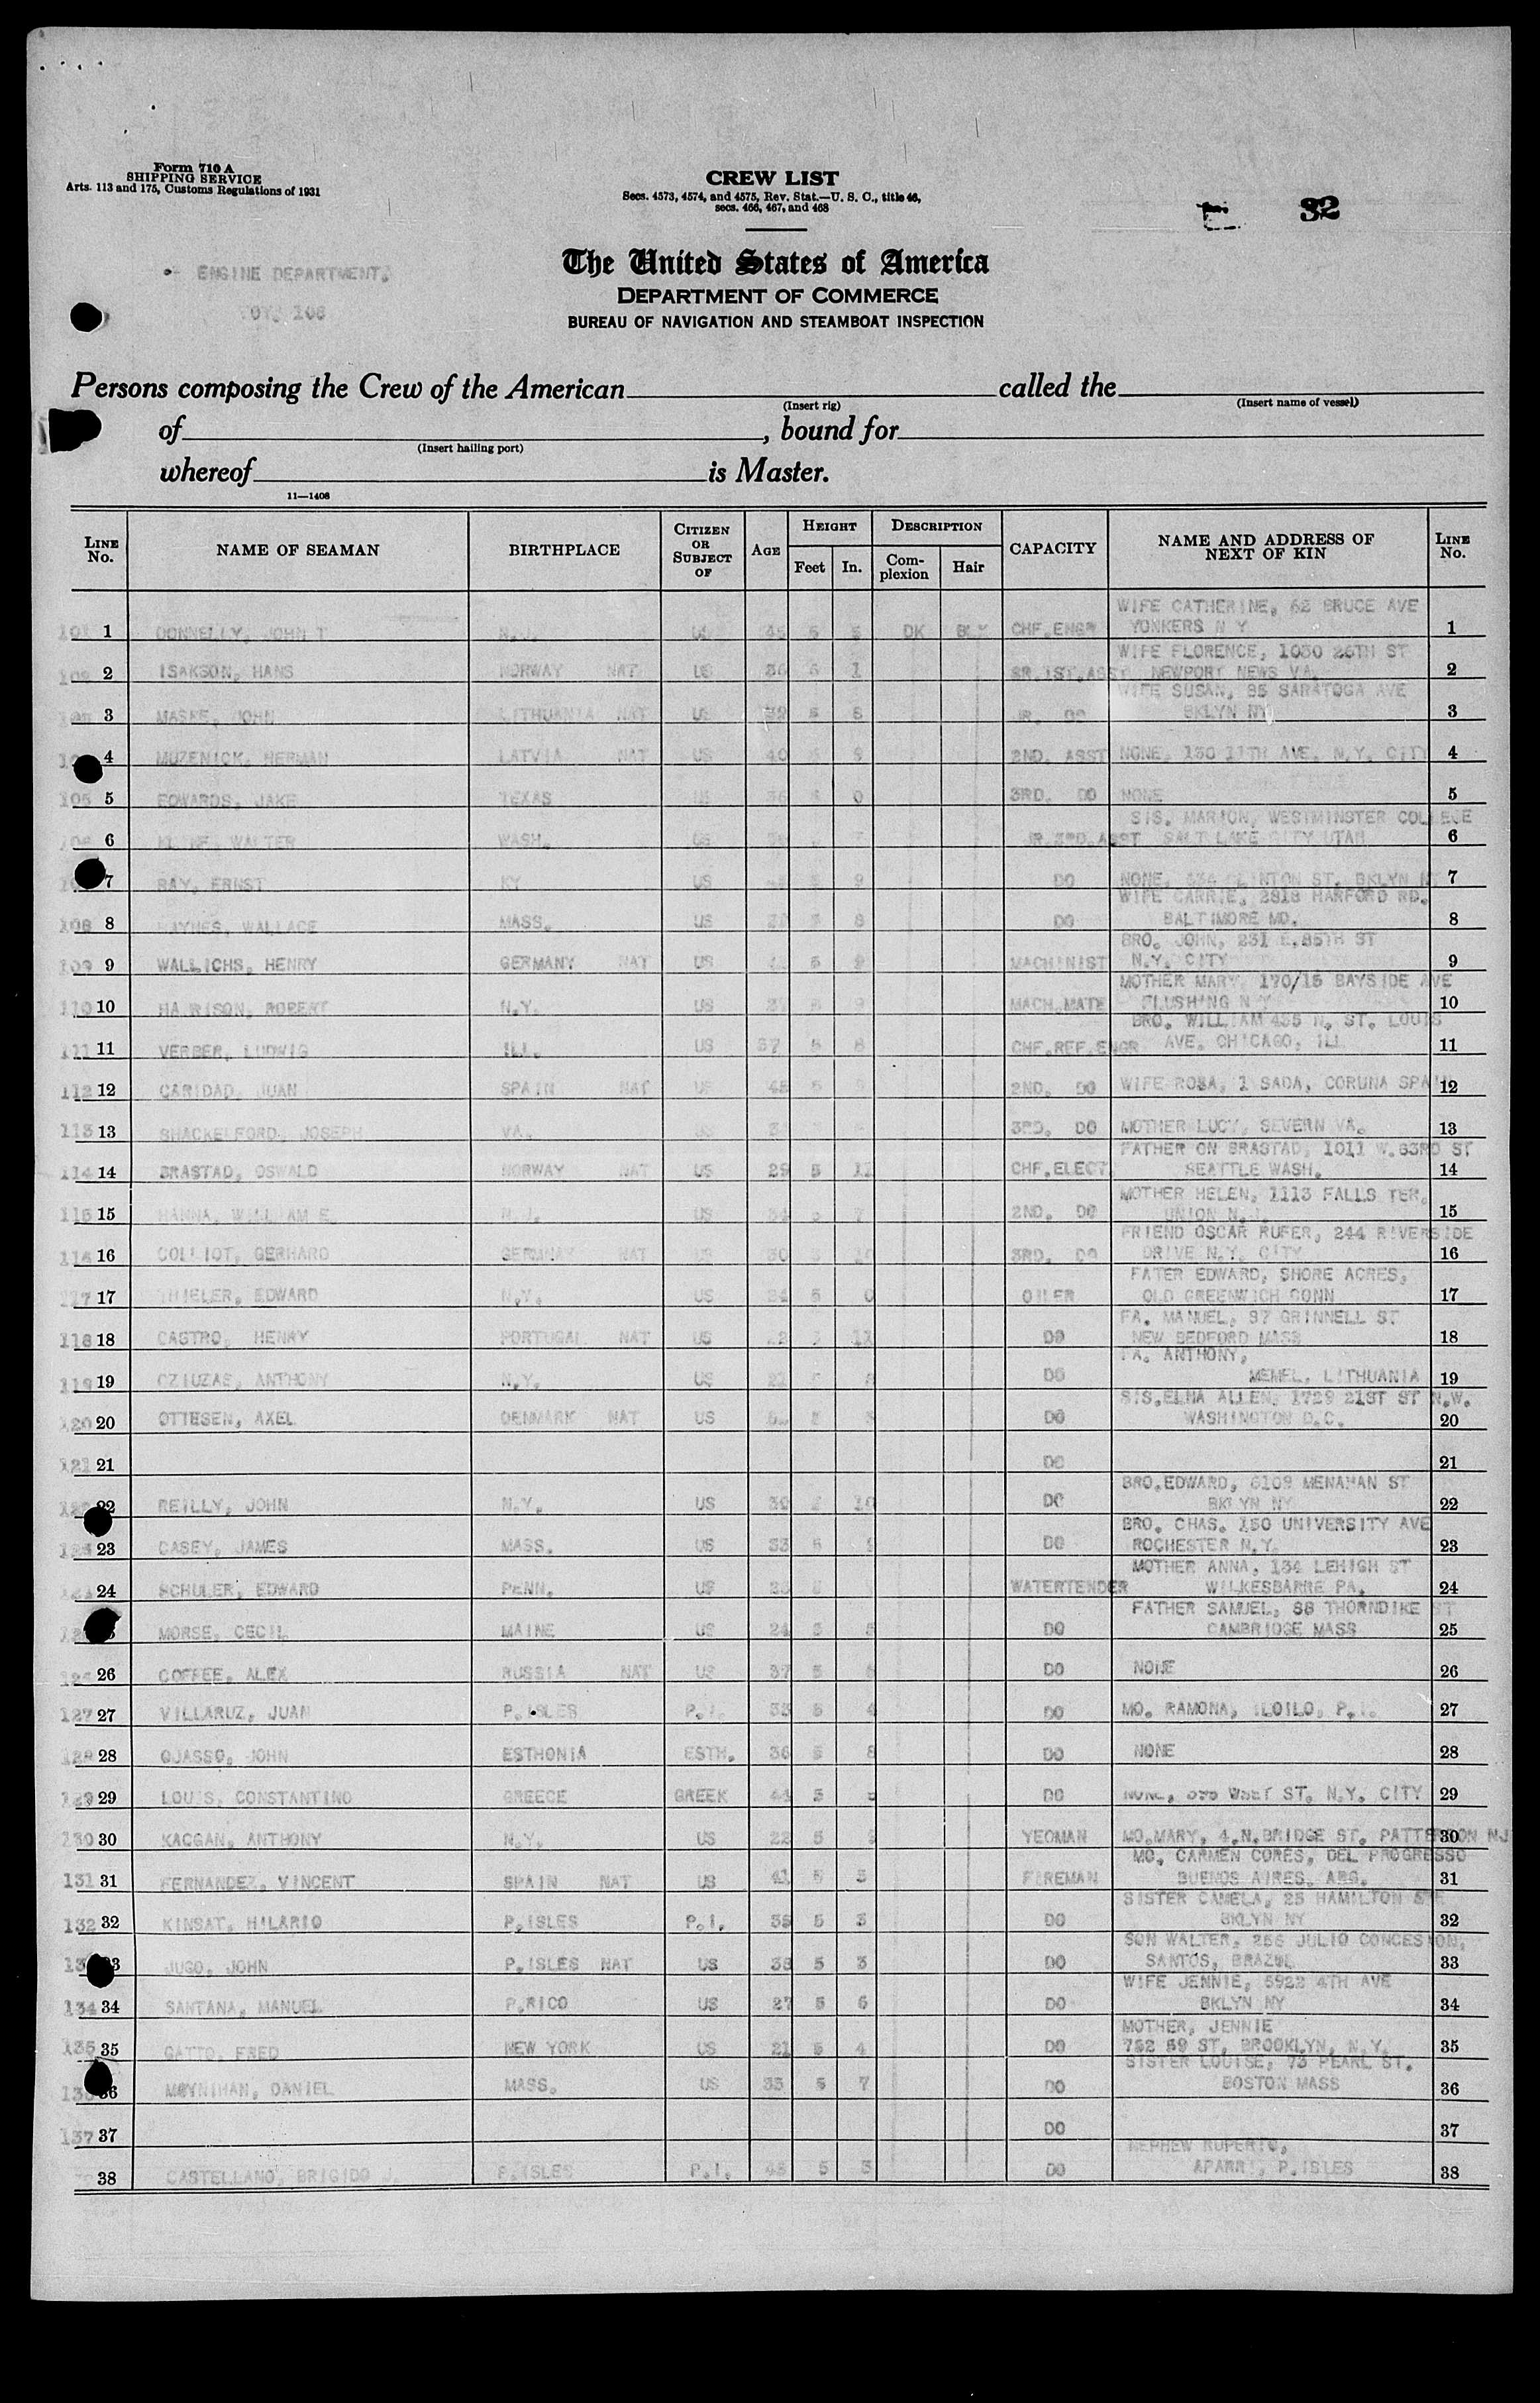 Form 710 A
SHIPPING SERVICE
Arts. 113 and 175, Customs Regulations of 1931
CREW LIST
Secs. 4573, 4574, and 4575, Rev. Stat.—U. S. C., title 46,
secs. 466, 467, and 468
32
The United States of America
DEPARTMENT OF COMMERCE
BUREAU OF NAVIGATION AND STEAMBOAT INSPECTION
ENGINE DEPARTMENT.
106
Persons composing the Crew of the American called the
(Insert rig) (Insert name of vessel)
of , bound for
(Insert hailing port)
whereof is Master.
11—1408
LINE No. NAME OF SEAMAN BIRTHPLACE CITIZEN OR SUBJECT OF AGE HEIGHT Feet In. DESCRIPTION Complexion Hair CAPACITY NAME AND ADDRESS OF NEXT OF KIN LINE No.
WIFE CATHERINE, 62 BRUCE AVE
1 DONNELLY, JOHN T N.J. 5 DK BLK CHF.ENGR YONKERS N Y 1
WIFE FLORENCE, 1030 26TH ST
2 ISAKSON, HANS NORWAY NAT US 36 1 SR.1ST.ASST NEWPORT NEWS VA. 2
WIFE SUSAN, 85 SARATOGA AVE
3 JOHN LITHUANIA NAT US 5 8 JR. DO BKLYN NY 3
4 MUZENICK, HERMAN LATVIA NAT US 40 2ND. ASST NONE, 130 11TH AVE. N.Y. CITY 4
105 5 EDWARDS, JAKE TEXAS US 36 0 3RD. DO NONE 5
SIS. MARION, WESTMINSTER COLLEGE
6 WALTER WASH. US JR.3RD.ASST SALT LAKE CITY UTAH 6
7 RAY, ERNST KY US 9 DO NONE, CLINTON ST. BKLYN 7
WIFE CARRIE, 2818 HARFORD RD.
108 8 HAYNES, WALLACE MASS. US 8 DO BALTIMORE MD. 8
BRO. JOHN, 231 E.85TH ST
109 9 WALLICHS, HENRY GERMANY NAT US 5 MACHINIST N.Y. CITY 9
MOTHER MARY, 170/15 BAYSIDE AVE
110 10 HARRISON, ROBERT N.Y. US 5 9 MACH.MATE FLUSHING N Y 10
BRO. WILLIAM 435 N. ST. LOUIS
111 11 VERBER, LUDWIG ILL. US 57 5 8 CHF.REF.ENGR AVE. CHICAGO, ILL 11
112 12 CARIDAD, JUAN SPAIN NAT US 45 5 2ND. DO WIFE ROSA, 1 SADA, CORUNA SPAIN 12
113 13 SHACKELFORD, JOSEPH VA. 3RD. DO MOTHER LUCY, SEVERN VA. 13
FATHER ON BRASTAD, 1011 W.63RD ST
114 14 BRASTAD, OSWALD NORWAY NAT US 29 5 11 CHF.ELECT. SEATTLE WASH. 14
MOTHER HELEN, 1113 FALLS TER.
115 15 HANNA, WILLIAM E N.J. US 7 2ND. DO UNION N.J. 15
FRIEND OSCAR RUFER, 244 RIVERSIDE
116 16 COLLIOT, GERHARD GERMNAY NAT US 30 10 3RD. DO DRIVE N.Y. CITY 16
FATER EDWARD, SHORE ACRES,
117 17 EDWARD N.Y. US 24 5 0 OILER OLD GREENWICH CONN 17
FA. MANUEL, 97 GRINNELL ST
118 18 CASTRO, HENRY PORTUGAL NAT US 11 DO NEW BEDFORD MASS 18
FA. ANTHONY,
119 19 CZIUZAS, ANTHONY N.Y. US DO MEMEL, LITHUANIA 19
SIS.ELMA ALLEN, 1729 21ST ST N.W.
120 20 OTTESEN, AXEL DENMARK NAT US DO WASHINGTON D.C. 20
121 21 DO 21
BRO.EDWARD, 6109 MENAHAN ST
22 REILLY, JOHN N.Y. US 10 DO BKLYN NY 22
BRO. CHAS. 150 UNIVERSITY AVE
23 CASEY, JAMES MASS. US 33 5 DO ROCHESTER N.Y. 23
MOTHER ANNA, 134 LEHIGH ST
24 SCHULER, EDWARD PENN. US WATERTENDER WILKESBARRE PA. 24
FATHER SAMUEL, 88 THORNDIKE ST
MORSE, CECIL MAINE US 24 5 DO CAMBRIDGE MASS 25
26 COFFEE, ALEX RUSSIA NAT US 37 5 DO NONE 26
127 27 VILLARUZ, JUAN P.ISLES P.I. 33 5 4 DO MO. RAMONA, ILOILO, P.I. 27
128 28 OJASSO, JOHN ESTHONIA ESTH. 36 5 8 DO NONE 28
129 29 LOUIS, CONSTANTINO GREECE GREEK 44 5 DO NONE, WEST ST. N.Y. CITY 29
130 30 KACGAN, ANTHONY N.Y. US 22 5 YEOMAN MO.MARY, 4.N.BRIDGE ST. PATTERSON NJ 30
MO. CARMEN CORES, DEL PROGRESSO
131 31 FERNANDEZ, VINCENT SPAIN NAT US 41 5 5 FIREMAN BUENOS AIRES, ARG. 31
SISTER CAMELA, 25 HAMILTON STE
132 32 KINSAT, HILARIO P.ISLES P.I. 35 5 3 DO BKLYN NY 32
SON WALTER, 256 JULIO CONCESION,
JUGO, JOHN P.ISLES NAT US 38 5 3 DO SANTOS, BRAZIL 33
WIFE JENNIE, 5922 4TH AVE
134 34 SANTANA, MANUEL P.RICO US 27 5 6 DO BKLYN NY 34
MOTHER, JENNIE
135 35 GATTO, FRED NEW YORK US 21 5 4 DO 752 59 ST, BROOKLYN, N.Y. 35
SISTER LOUISE, 73 PEARL ST.
MOYNIHAN, DANIEL MASS. US 33 5 7 DO BOSTON MASS 36
137 37 DO 37
NEPHEW RUPERTO,
38 CASTELLANO, BRIGIDO J. P.ISLES P.I. 45 5 5 DO APARRI, P.ISLES 38